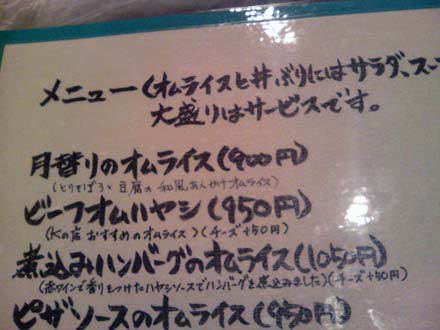 メニュー(オムライスと丼ぶりにはサラダ、スー
大盛りはサービスです。
月替りのオムライス(900円)
(とりそぼろと豆腐の和風あんかけオムライス)
ビーフオムハヤシ(950円)
(Kの店おすすめのオムライス)(チーズ+50円)
煮込みハンバーグのオムライス(1050円)
(赤ワインで香りをつけたハヤシソースでハンバーグを煮込みました)(チーズ+50円)
ピザソースのオムライス(950円)